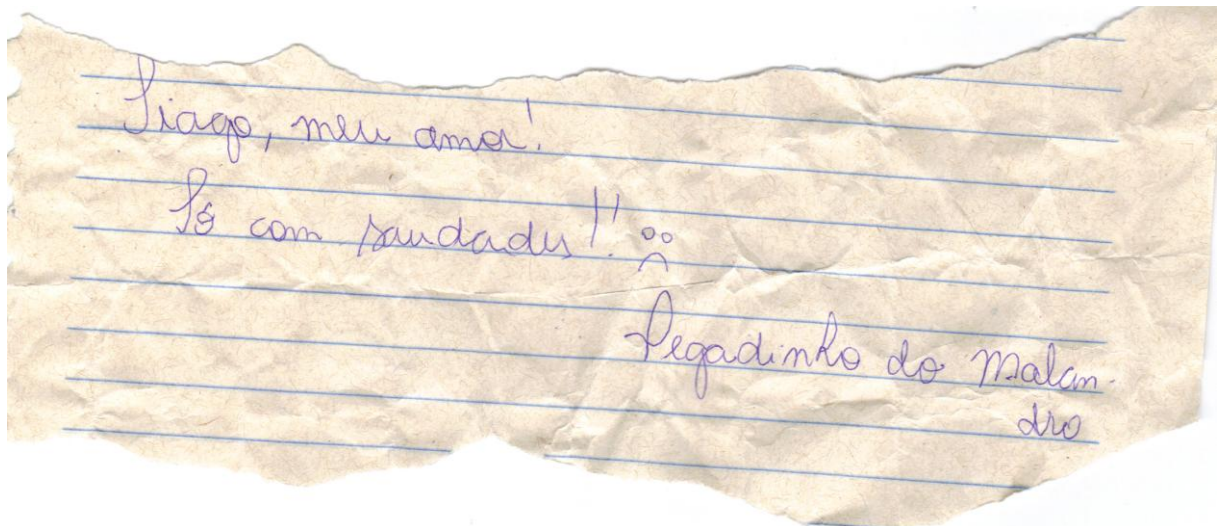 Tiago, meu amor!
Tô com saudades!! :(
Pegadinha do Malan-
dro